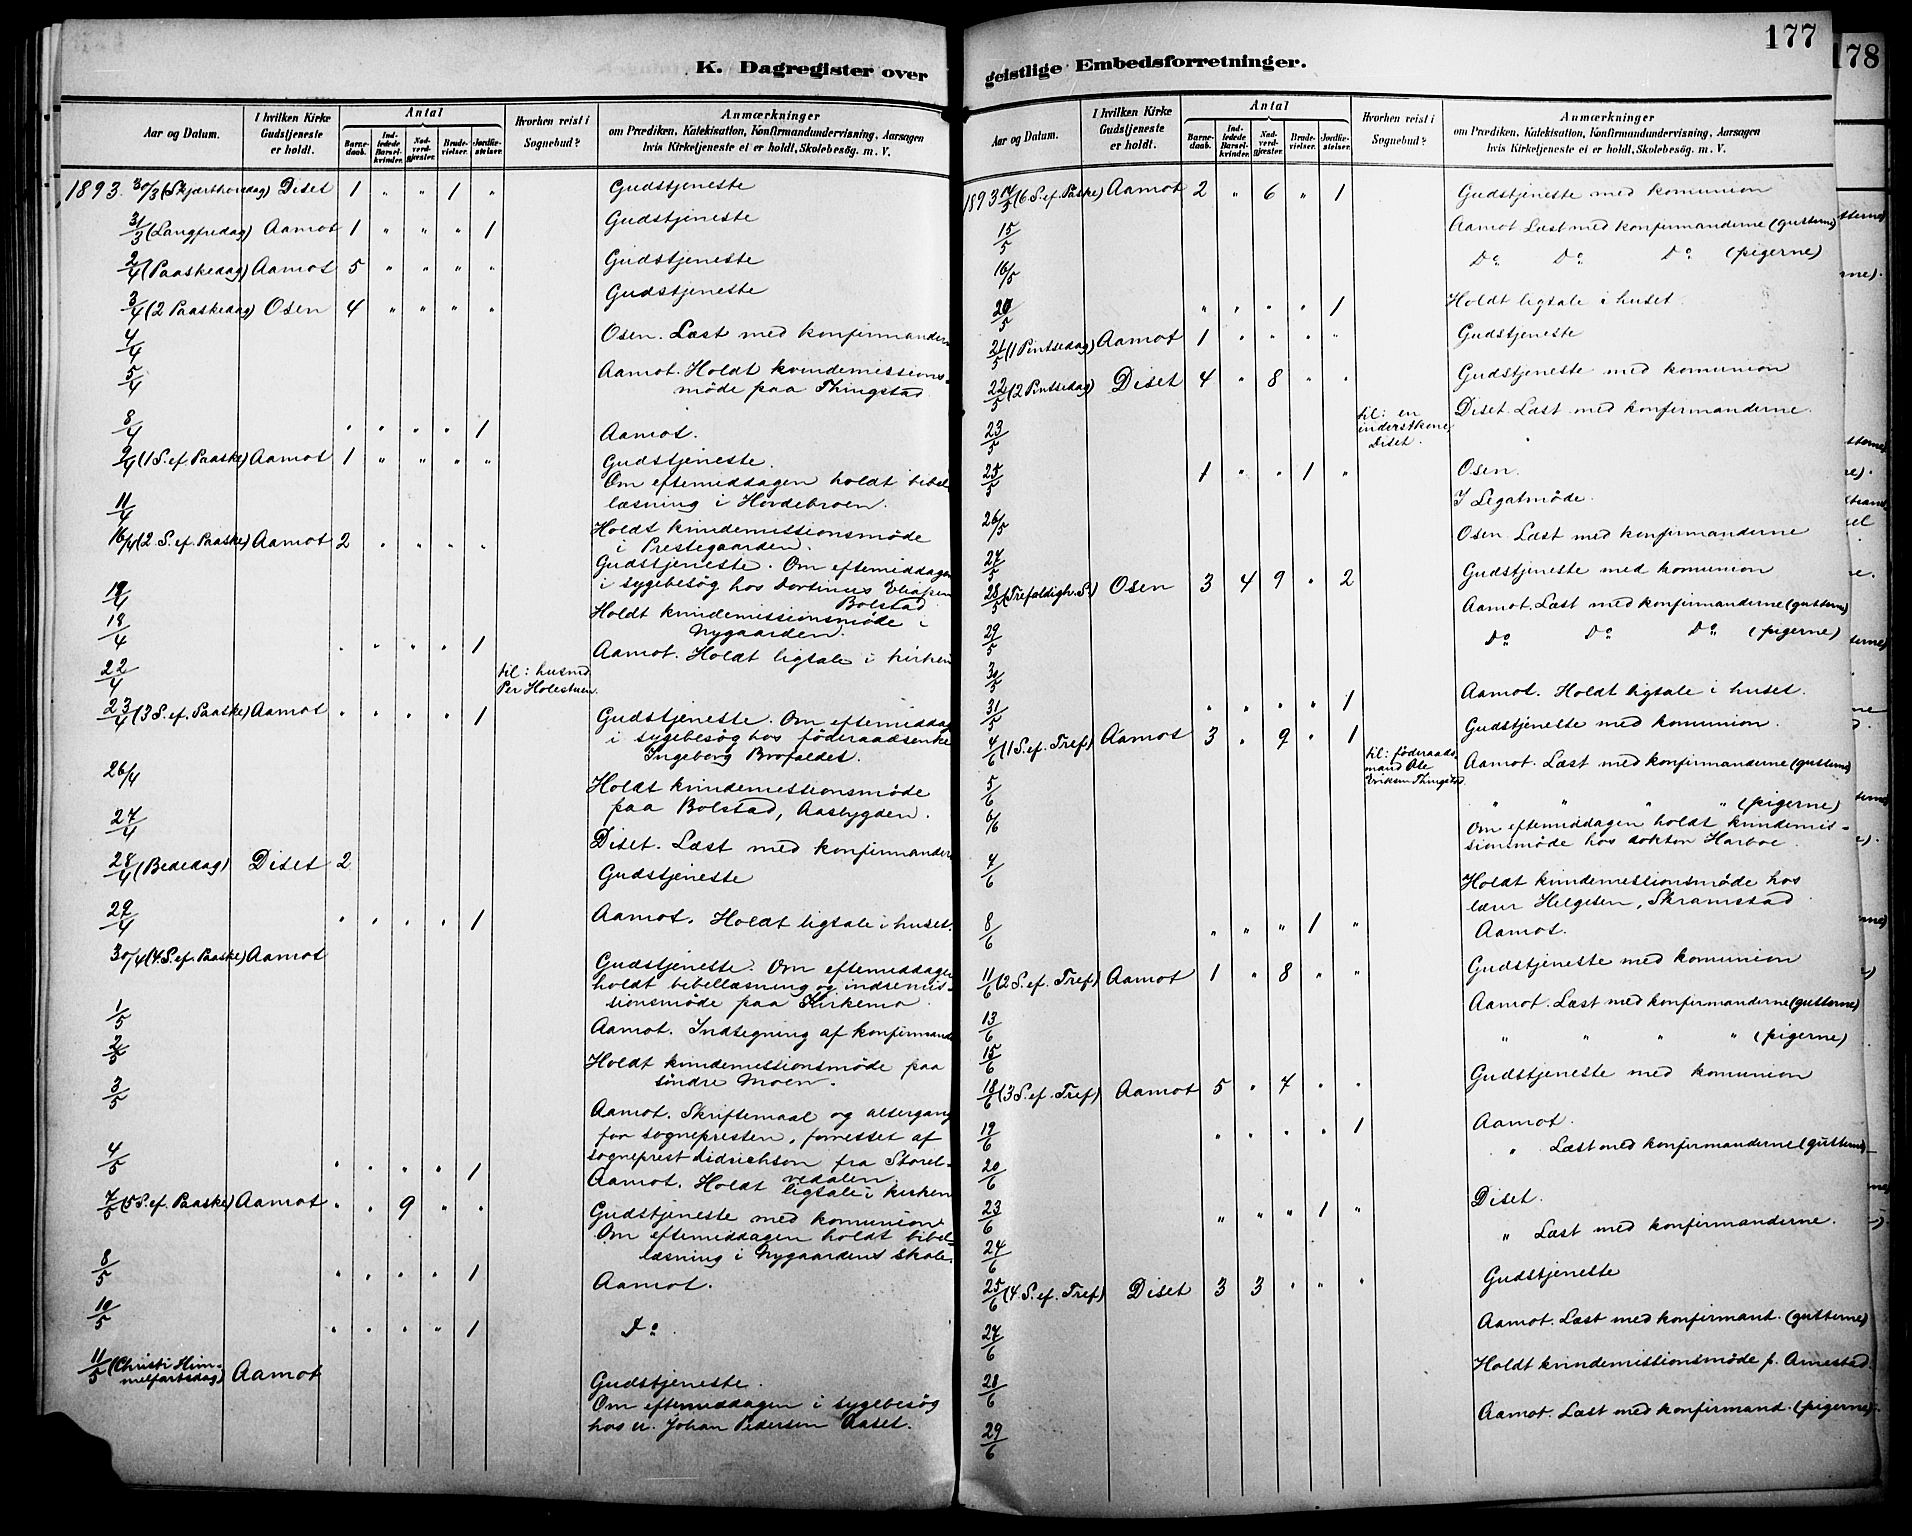 K. Dagregister over
Aar og Datum. | I hvilken Kirke Gudstjeneste er holdt. | Antal | Barnedaab. | Indledede Barselkvinder. | Nadverdgjæster. | Brudevielser. | Jordfæstelser. | Hvorhen reist i Sognebud? | Anmærkninger om Prædiken, Katekisation, Konfirmandundervisning, Aarsagen hvis Kirketjeneste ei er holdt, Skolebesøg. m. V.
1893. 30/3 (Skjærthorsdag) Diset 1 " " 1 " Gudstjeneste
31/3 (Langfredag) Aamot 1 " " " 1 Gudstjeneste
2/4 (Paaskedag) Aamot 5 " " " " Gudstjeneste
3/4 (2 Paaskedag) Osen 4 " " " " Gudstjeneste
4/4 Osen. Læst med konfirmandern
5/4 Aamot. Holdt kvindemissions-
møde paa Thingstad
8/4 " " " " 1 Aamot.
9/4 (1 S. ef. Paaske) Aamot 1 " " " " Gudstjeneste.
Om eftemiddagen holdt bibel-
læsning i Hovdebroen.
11/4 Holdt kvindemissionsmøde
i Prestegaarden.
16/4 (2 S. ef. Paaske) Aamot 2 " " " " Gudstjeneste. Om eftemiddagen
i sygebesøg hos Dortinus Eliasen
Bolstad
Holdt kvindemissionsmøde i
Nygaarden.
18/4
" " " " 1 Aamot. Holdt ligtale i kirken
22/4 til: husmd Per Holestuen.
23/4 (3 S. ef. Paaske) Aamot " " " " 1 Gudstjeneste. Om eftemiddag
i sygebesøg hos føderaadsenke
Ingeborg Brofaldet.
26/4 Holdt kvindemissionsmøde
paa Bolstad, Aasbygden.
27/4 Diset. Læst med konfirmandern
28/4 (Bededag) Diset 2 Gudstjeneste
29/4 " " " " 1 Aamot. Holdt ligtale i huset.
30/4 (4. S. ef. Paaske) Aamot Gudstjeneste. Om eftemiddagen
holdt bibellæsning og indremis-
sionsmøde paa Kirkemo.
1/5 Aamot. Indtegning af konfirmande
2/5 Holdt kvindemissionsmøde paa
søndre Moen.
3/5 Aamot. Skriftemaal og altergang
for sognepresten, forrettet af
sogneprest Didrichson fra Storel-
vedalen.
4/5 " " " " 1 Aamot. Holdt ligtale i kirken
7/5 (5 S. ef. Paaske) Aamot " " 9 " " Gudstjeneste med komunion
Om eftemiddagen holdt bibel-
læsning i Nygaardens skole.
8/5 " " " " 1 Aamot.
10/5 " " " " 1 Do.
11/5 (Christi Him-
melfartsdag) Aamot Gudstjeneste.
Om eftemiddagen i sygebesøg
hos u. Johan Pedersen Aaset.
177
178
geistlige Embedsforretninger.
Aar og Datum. | I hvilken Kirke Gudstjeneste er holdt. | Antal | Barnedaab. | Indledede Barselkvinder. | Nadverdgjæster. | Brudevielser. | Jordfæstelser. | Hvorhen reist i Sognebud? | Anmærkninger om Prædiken, Katekisation, Konfirmandundervisning, Aarsagen hvis Kirketjeneste ei er holdt, Skolebesøg. m. V.
1893 14/5 (6 S. ef. Paaske) Aamot 2 " 6 " 1 Gudstjeneste med komunion
15/5 Aamot Læst med konfirmanderne (gutterne)
16/5 Do Do Do (pigerne)
20/5 " " " " 1 Holdt ligtale i huset.
21/5 (1 Pintsedag) Aamot 1 " " " " Gudstjeneste
22/5 (2 Pintsedag) Diset 4 " 8 " " Gudstjeneste med komunion
23/5 til: en inderstkone, Diset. Diset. Læst med konfirmanderne.
25/5 1 " " 1 " Osen.
26/5 I Legatmøde.
27/5 Osen Læst med konfirmanderne
28/5 (Trefoldigh. S.) Osen 3 4 9 " 2 Gudstjeneste med komunion
29/5 Aamot. Læst med konfirmanderne (gutterne)
30/5 Do Do Do (pigerne)
31/5 " " " " 1 Aamot. Holdt ligtale i huset.
4/6 (1 S. ef. Tref) Aamot 3 " 9 " 1 Gudstjeneste med komunion.
5/6 til: føderaads mand Ole Eriksen Thingstad Aamot. Læst med konfirmanderne (gutterne)
6/6 " " " " (pigerne)
Om eftemiddagen holdt kvindemis-
sionsmøde hos doktor Harboe.
7/6 Holdt kvindemissionsmøde hos
lærer Helgesen, Skramstad
8/6 " " " 1 " Aamot.
11/6 (2 S. ef. Tref) Aamot 1 " 8 " " Gudstjeneste med komunion
13/6 Aamot. Læst med konfirmanderne (gutterne)
15/6 " " " " (pigerne)
18/6 (3 S. ef. Tref) Aamot 5 " 7 " " Gudstjeneste med komunion
19/6 " " " " 1 Aamot.
20/6 " Læst med konfirmanderne (gutterne)
23/6 " " " 1 " Diset.
24/6 " Læst med konfirmanderne.
25/6 (4. S. ef. Tref) Diset 3 3 " " " Gudstjeneste
27/6 Aamot. Læst med konfirmand. (gutterne)
28/6 Holdt kvindemissionsmøde p. Arnestad.
29/6 Aamot. Læst med konfirmand. (pigerne)